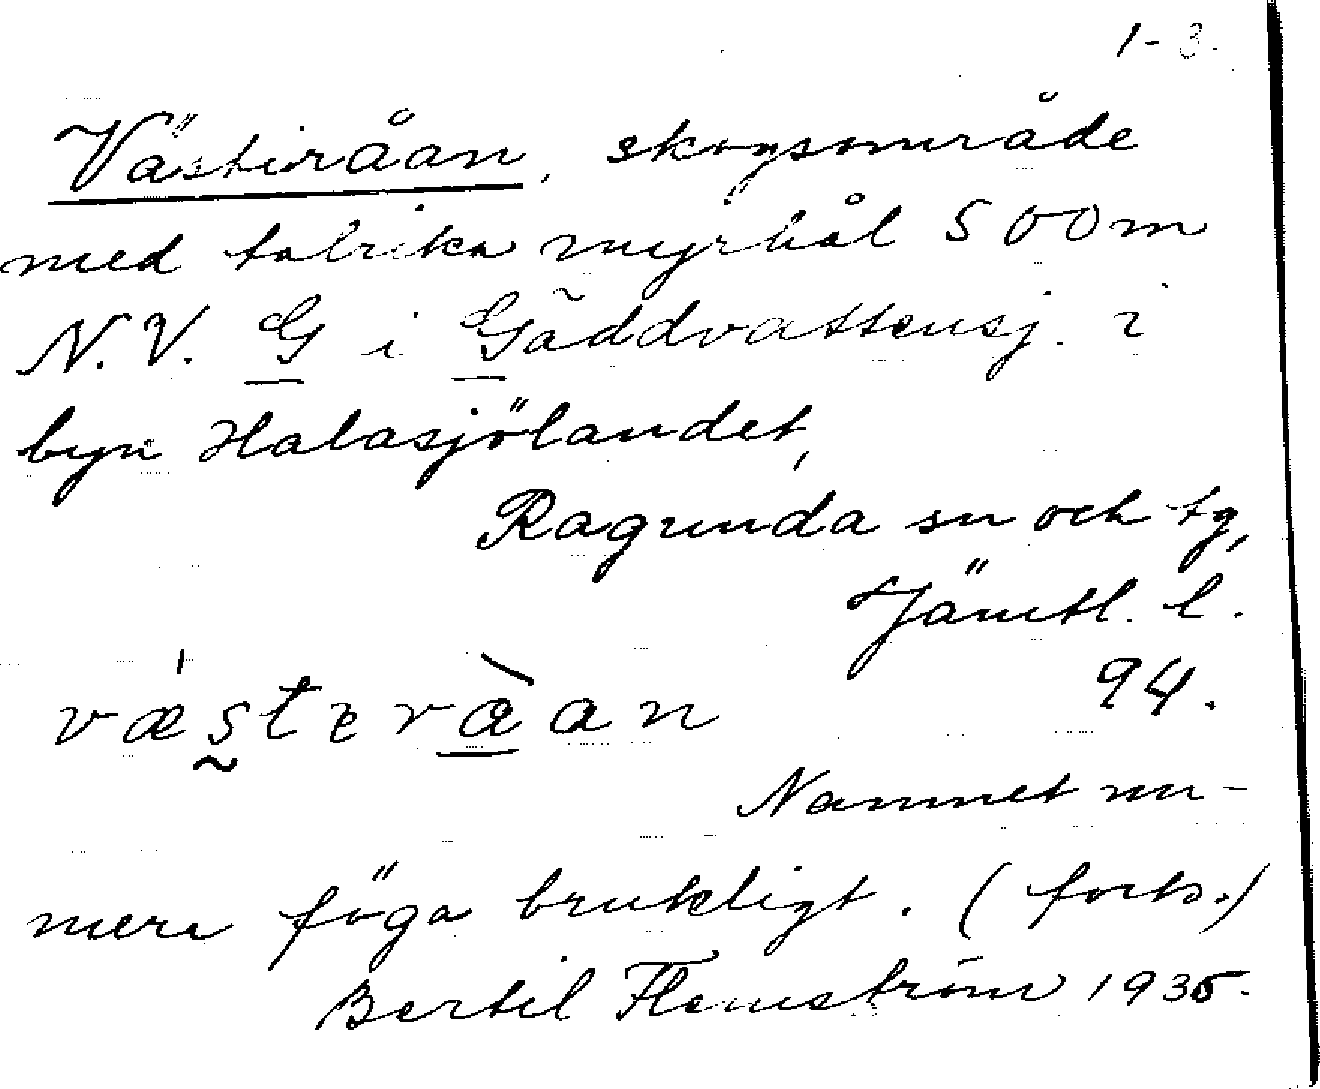 1-3.
Västeråan, skogsområde
med talrika myrhål 500m
N.V. G i Gäddvattensj. i
byn Halasjölandet,
Ragunda sn och tg,
Jämtl. l.
94.
væsteràan
Namnet nu-
mera föga brukligt. (forts.)
Bertil Flemström 1935.